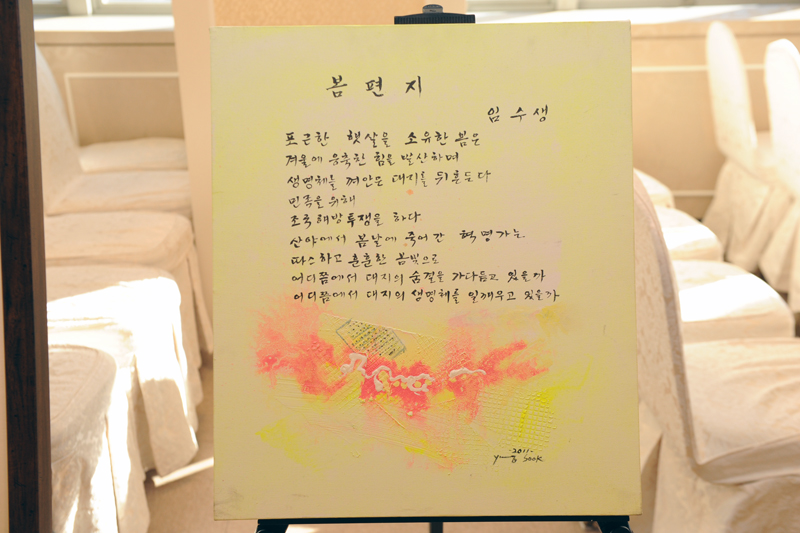 봄 편 지
임 수 생
포근한 햇살을 소유한 봄은
겨울에 응축한 힘을 발산하며
생명체를 껴안은 대지를 뒤흔든다
민족을 위해
조국해방투쟁을 하다
산야에서 봄날에 죽어간 혁명가는
따스하고 훈훈한 봄빛으로
어디쯤에서 대지의 숨결을 가다듬고 있을까
어디쯤에서 대지의 생명체를 일깨우고 있을까
-2011-
sook